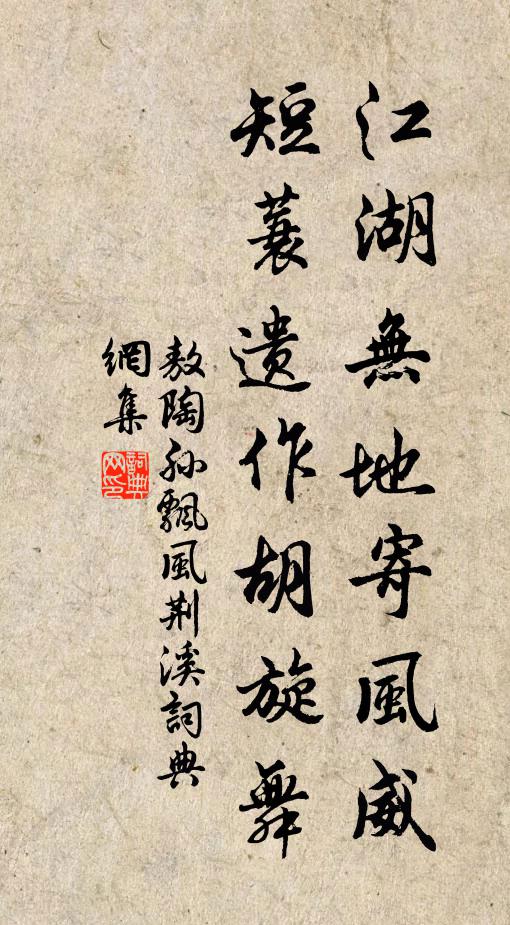 江湖無地寄風威
短蓑遺作胡旋舞
敖陶孙飄風荆溪詞典
網集
詞典網印